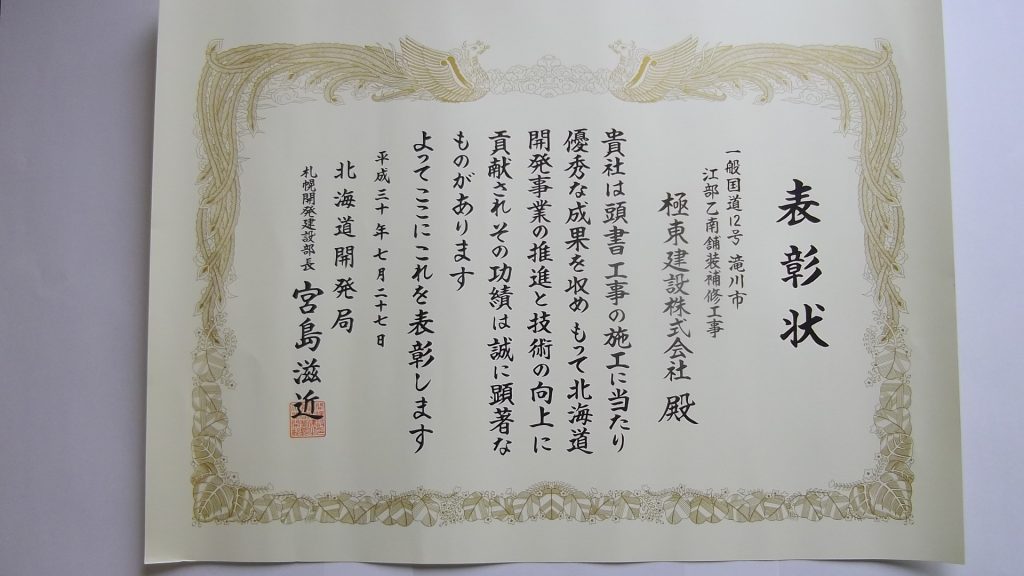 表彰状
一般国道12号 滝川市
江部乙南舗装補修工事
極東建設株式会社 殿
貴社は頭書工事の施工に当たり
優秀な成果を収め もって北海道
開発事業の推進と技術の向上に
貢献され その功績は誠に顕著な
ものがあります
よってここにこれを表彰します
平成三十年七月二十七日
北海道開発局
札幌開発建設部長 宮島滋近